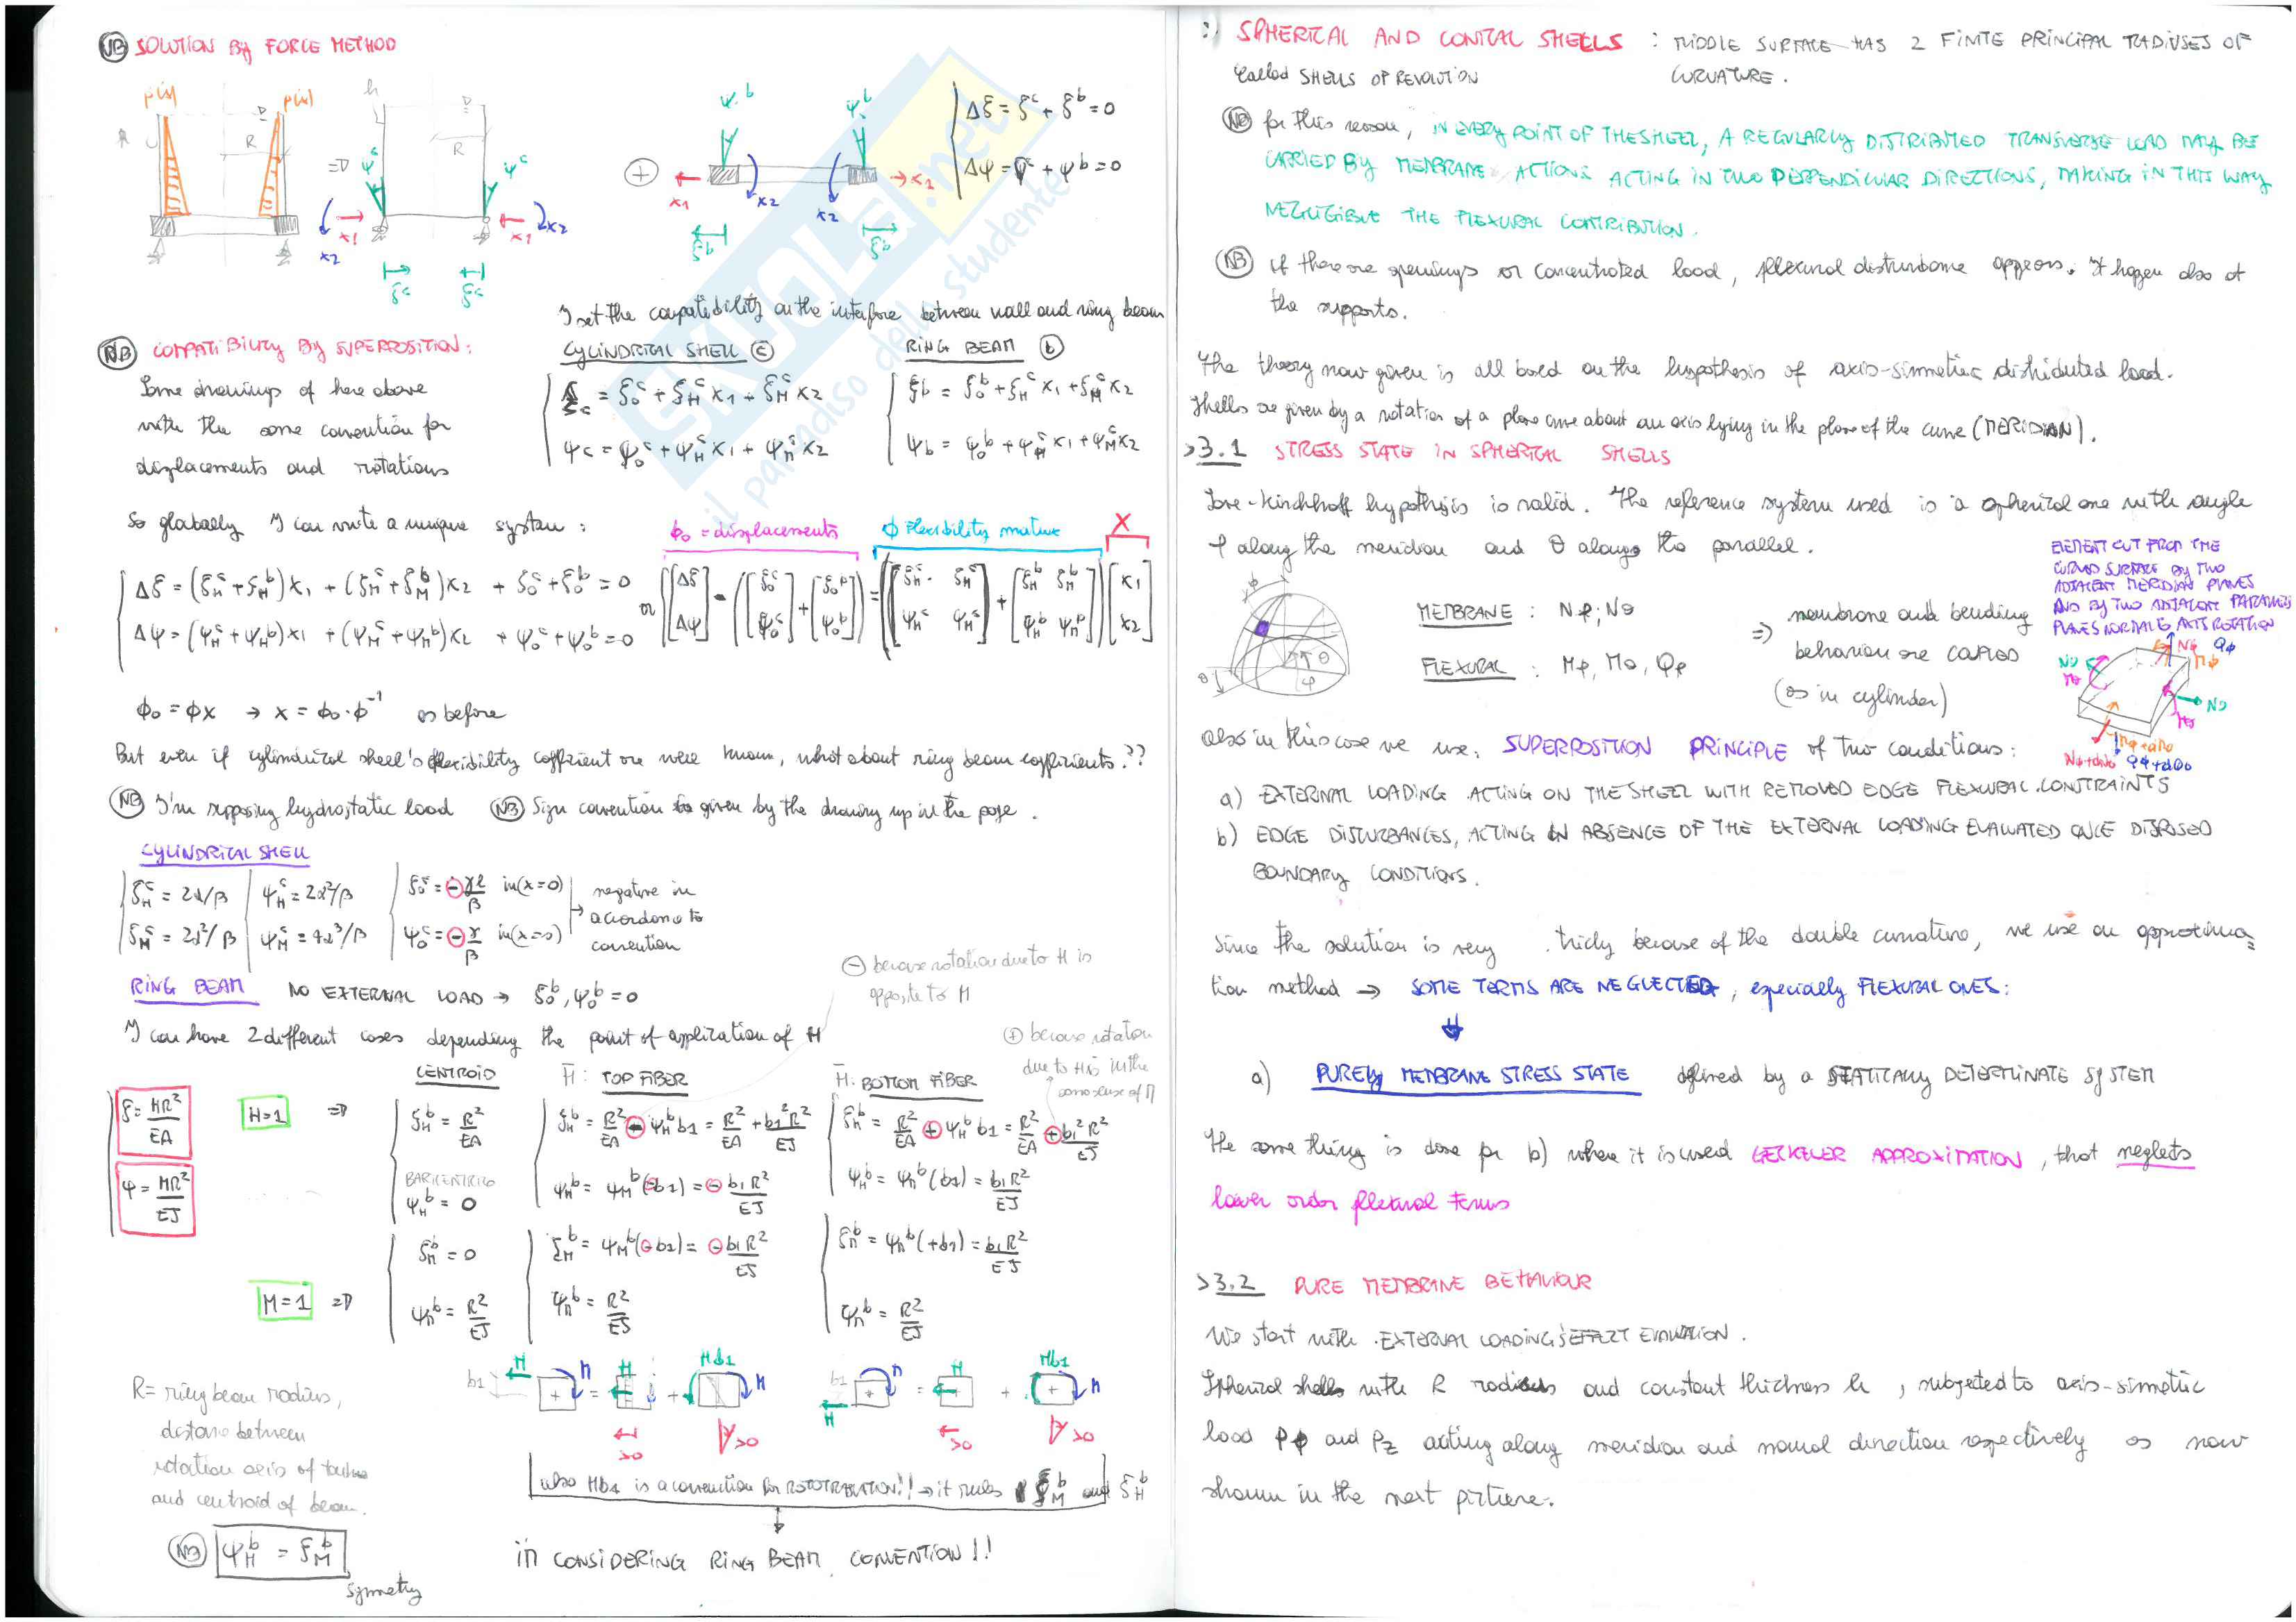 NB SOLUTION By FORCE METHOD
p(x) p(x)
h
R R
ψᶜ ψᶜ
x1 x1
x2 x2
ξᶜ ξᶜ
⇒ +
ψᵇ ψᵇ
x1 x1
x2 x2
ξᵇ ξᵇ
Δξ = ξᶜ + ξᵇ = 0
Δψ = ψᶜ + ψᵇ = 0
SKUOLA.net
il paradiso dello studente
I set the compatibility on the interface between wall and ring beam
NB COMPATIBILITY By SUPERPOSITION:
Same drawings of here above
with the same convention for
displacements and rotations
CYLINDRICAL SHELL (c)
ξc = ξ₀ᶜ + ξHᶜ x1 + ξMᶜ x2
ψc = ψ₀ᶜ + ψHᶜ x1 + ψMᶜ x2
RING BEAM (b)
ξb = ξ₀ᵇ + ξHᶜ x1 + ξMᶜ x2
ψb = ψ₀ᵇ + ψHᶜ x1 + ψMᶜ x2
So globally I can write a unique system:
Φ₀ = displacements Φ Flexibility matrix X
Δξ = (ξHᶜ + ξHᵇ) x1 + (ξMᶜ + ξMᵇ) x2 + ξ₀ᶜ + ξ₀ᵇ = 0
Δψ = (ψHᶜ + ψHᵇ) x1 + (ψMᶜ + ψMᵇ) x2 + ψ₀ᶜ + ψ₀ᵇ = 0
or ([Δξ Δψ] - ([ξ₀ᶜ ψ₀ᶜ] + [ξ₀ᵇ ψ₀ᵇ])) = ([ξHᶜ ξMᶜ ψHᶜ ψMᶜ] + [ξHᵇ ξMᵇ ψHᵇ ψMᵇ]) [x1 x2]
ϕ₀ = ϕx → x = ϕ₀ · ϕ⁻¹ as before
But even if cylindrical shell's flexibility coefficient are were known, what about ring beam coefficients??
NB I'm supposing hydrostatic load NB Sign convention is given by the drawing up in the page.
CYLINDRICAL SHELL
ξHᶜ = 2α/β ψHᶜ = 2α²/β ξ₀ᶜ = -γl/β in (x=0)
ξMᶜ = 2α²/β ψMᶜ = 4α³/β ψ₀ᶜ = -γ/β in (x=0)
→ negative in
accordance to
convention
RING BEAM NO EXTERNAL LOAD → ξ₀ᵇ, ψ₀ᵇ = 0
- because rotation due to H is
opposite to M
I can have 2 different cases depending the point of application of H
+ because rotation
due to H is in the
same sense of M
ξ = HR²/EA
ψ = MR²/EJ
H=1 ⇒
CENTROID
ξHᵇ = R²/EA
BARICENTRICO
ψHᵇ = 0
H̄: TOP FIBER
ξHᵇ = R²/EA - ψHᵇ b1 = R²/EA + b1²R²/EJ
ψHᵇ = ψMᵇ(-b1) = - b1R²/EJ
H̄: BOTTOM FIBER
ξHᵇ = R²/EA + ψHᵇ b1 = R²/EA + b1²R²/EJ
ψHᵇ = ψMᵇ(b1) = b1R²/EJ
M=1 ⇒
ξMᵇ = 0
ψMᵇ = R²/EJ
ξMᵇ = ψMᵇ(-b1) = - b1R²/EJ
ψMᵇ = R²/EJ
ξMᵇ = ψMᵇ(+b1) = b1R²/EJ
ψMᵇ = R²/EJ
b1 H M = H + Hb1 M
>0 >0
b1 H M = H + Hb1 M
>0 >0
R = ring beam radius,
distance between
rotation axis of
and centroid of beam.
also Hb1 is a convention for !! → it rules ξMᵇ and ξHᵇ
NB ψHᵇ = ξMᵇ
symmetry
in CONSIDERING RING BEAM CONVENTION!!
SPHERICAL AND CONICAL SHELLS : MIDDLE SURFACE HAS 2 FINITE PRINCIPAL RADIUSES OF
called SHELLS OF REVOLUTION CURVATURE.
NB for this reason, IN EVERY POINT OF THE SHELL, A REGULARLY DISTRIBUTED TRANSVERSE LOAD MAY BE
CARRIED BY MEMBRANE ACTIONS ACTING IN TWO PERPENDICULAR DIRECTIONS, MAKING IN THIS WAY
NEGLIGIBLE THE FLEXURAL CONTRIBUTION.
NB if there are openings or concentrated load, flexural disturbance appears. It happen also at
the supports.
The theory now given is all based on the hypothesis of axis-simmetric distributed load.
Shells are given by a rotation of a plane curve about an axis lying in the plane of the curve (MERIDIAN).
>3.1 STRESS STATE IN SPHERICAL SHELLS
Love-Kirchhoff hypothesis is valid. The reference system used is a spherical one with angle
φ along the meridian and θ along the parallel.
ELEMENT CUT FROM THE
CURVED SURFACE By TWO
ADJACENT MERIDIAN PLANES
AND BY TWO ADJACENT PARALLEL
PLANES NORMAL TO AXIS ROTATION
MEMBRANE : Nφ; Nθ
FLEXURAL : Mφ, Mθ, Qφ
⇒ membrane and bending
behaviour are COUPLED
(as in cylinder)
φ θ φ θ
Nφ Qφ
Mφ
Nθ
Mθ
Nθ
Mθ
Mφ+dMφ
Nφ+dNφ Qφ+dQφ
also in this case we use: SUPERPOSITION PRINCIPLE of two conditions:
a) EXTERNAL LOADING ACTING ON THE SHELL WITH REMOVED EDGE FLEXURAL CONSTRAINTS
b) EDGE DISTURBANCES, ACTING IN ABSENCE OF THE EXTERNAL LOADING EVALUATED ONCE DISPOSED
BOUNDARY CONDITIONS.
Since the solution is very tricky because of the double curvature, we use an approxima=
tion method → SOME TERMS ARE NEGLECTED, especially FLEXURAL ONES:
a) PURELY MEMBRANE STRESS STATE defined by a STATICALLY DETERMINATE SYSTEM
The same thing is done for b) where it is used GECKELER APPROXIMATION, that neglects
lower order flexural terms
>3.2 PURE MEMBRANE BEHAVIOUR
We start with EXTERNAL LOADING'S EFFECT EVALUATION.
Spherical shells with R radius and constant thickness h, subjected to axis-simmetric
load Pφ and Pz acting along meridian and normal direction respectively as now
shown in the next picture.